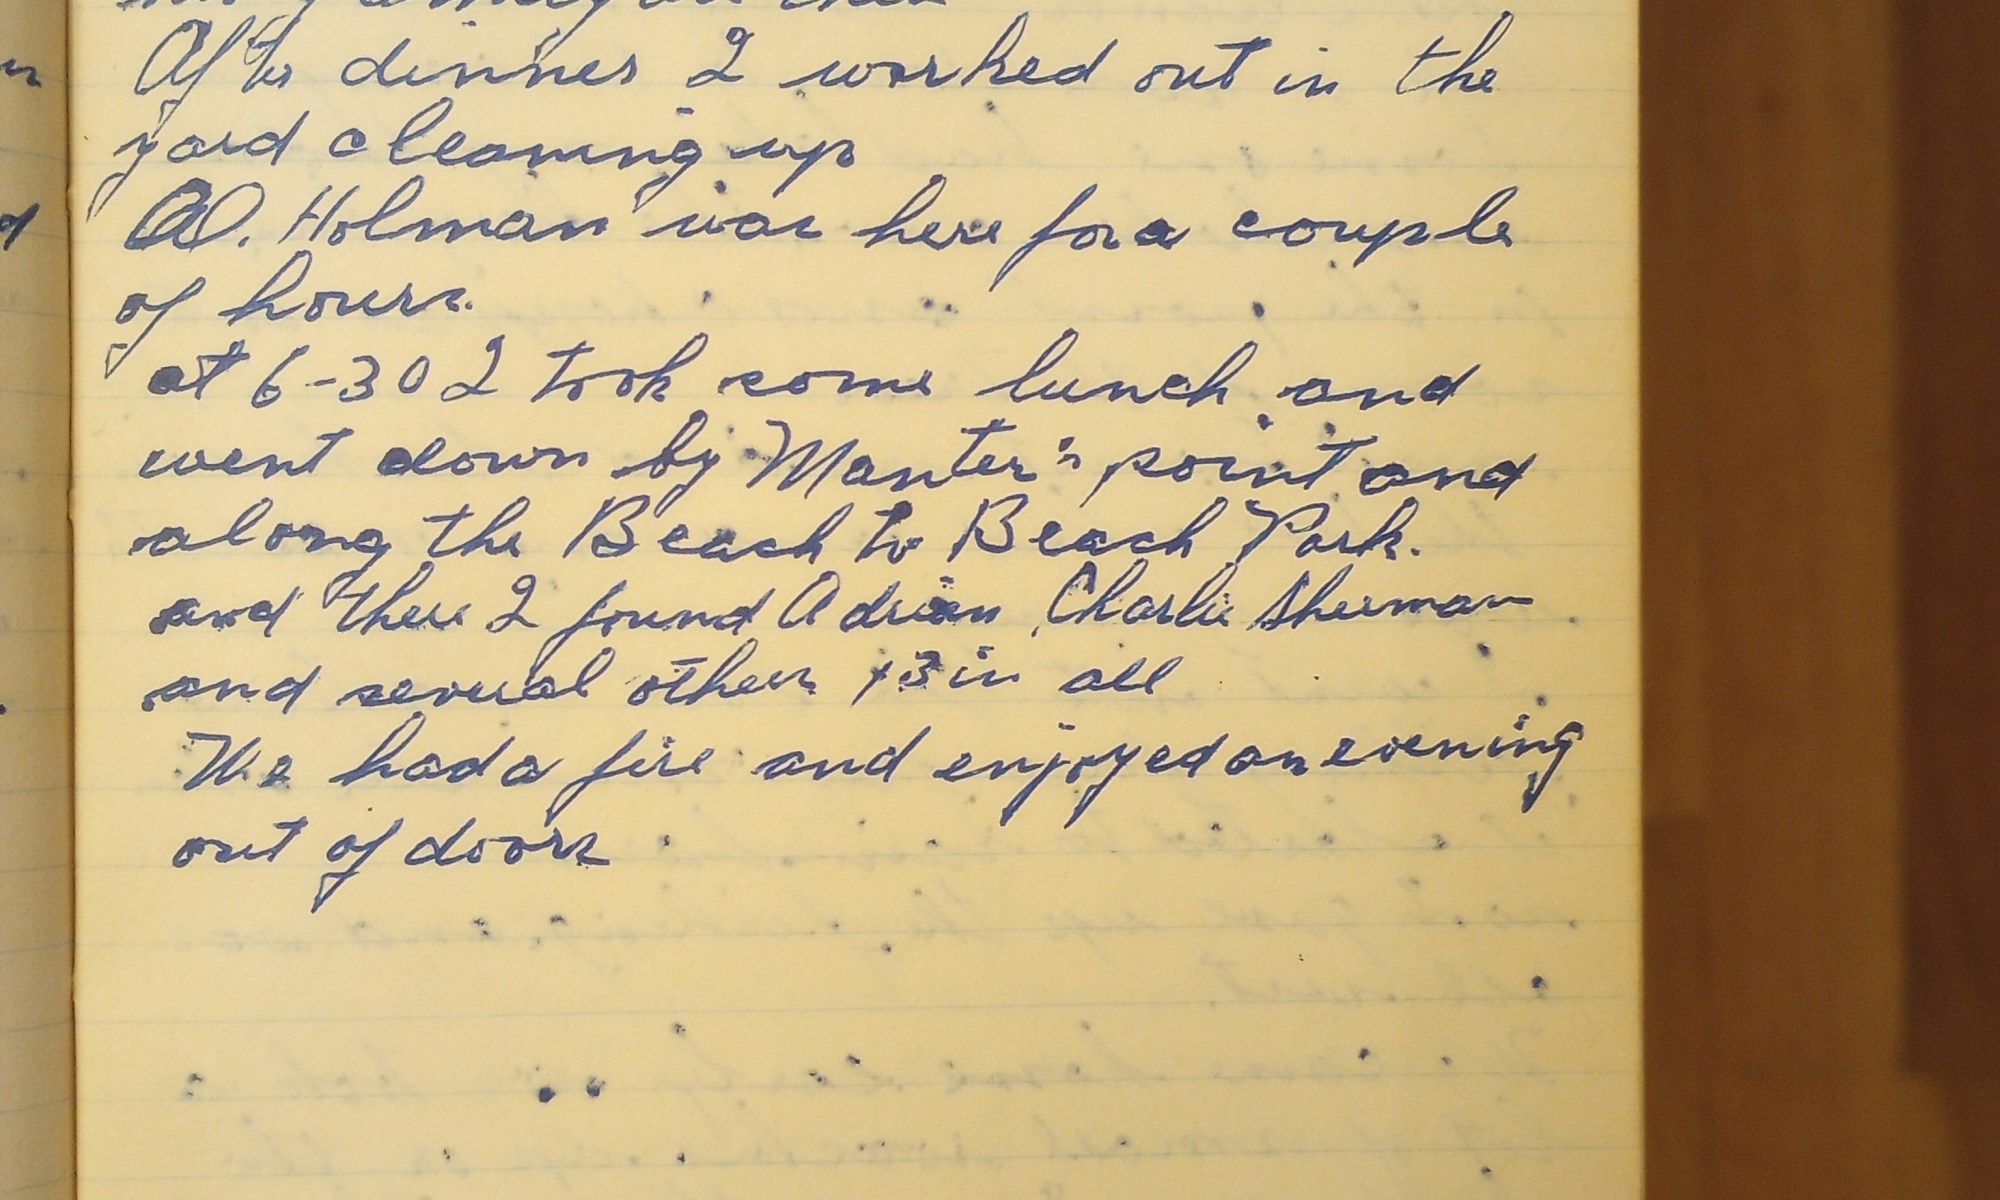 After dinner I worked out in the
yard cleaning up
Al. Holman was here for a couple
of hours.
at 6-30 I took some lunch and
went down by Manter's point and
along the Beach to Beach Park.
and there I found Adrian, Charlie Sherman
and several others 13 in all
We had a fire and enjoyed an evening
out of doors